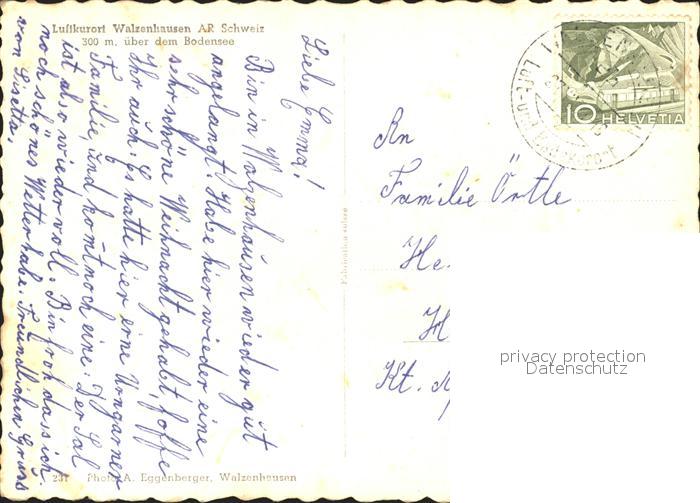 Luftkurort Walzenhausen AR Schweiz
300 m. über dem Bodensee
Liebe Emma!
Bin in Walzenhausen wieder gut
angelangt. Habe hier wieder eine
sehr schöne Weihnacht gehabt, hoffe
Ihr auch. Es hatte hier eine Ungarner
Familie, und komt noch eine. Der Sal
ist also wieder voll. Bin froh dass ich
noch schönes Wetter habe. Freundlichen Gruss
von Lisetta.
237 Photo A. Eggenberger, Walzenhausen
Fabrication suisse
10 HELVETIA
An
Familie Örtle
He.
H
Kt.
privacy protection
Datenschutz